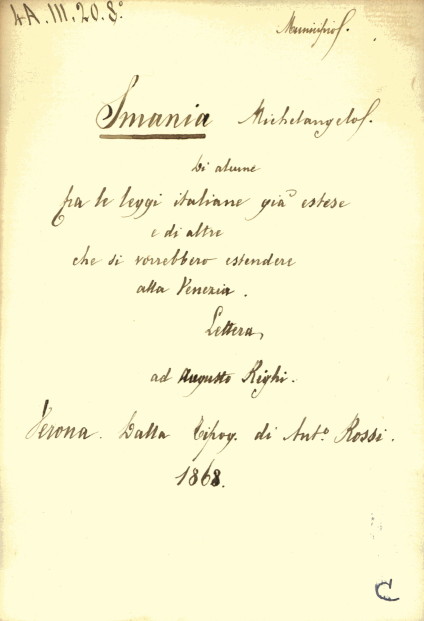 4A. III. 20. 8.°
Municipio.
Smania Michelangelo.
Di alcune
fra le leggi italiane già estese
e di altre
che si vorrebbero estendere
alla Venezia.
Lettera,
ad Augusto Righi.
Verona. Dalla Tipog. di Ant.° Rossi.
1868.
C